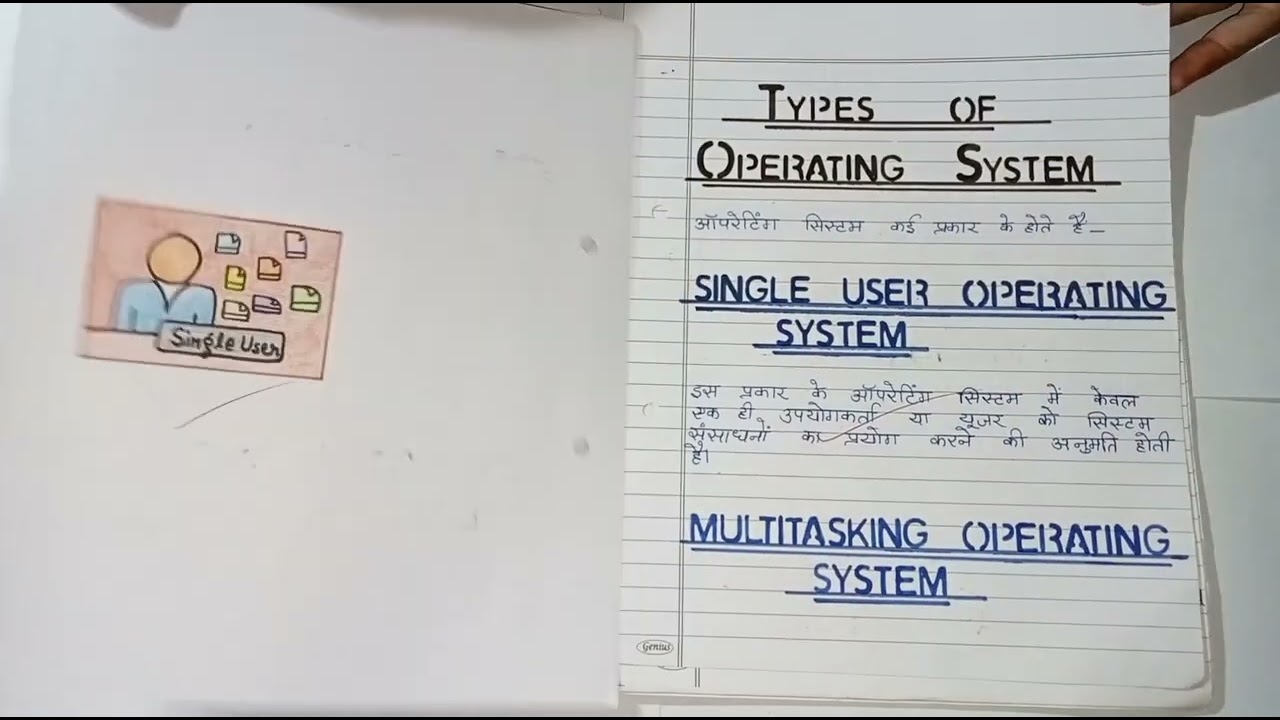 Single User
TYPES OF
OPERATING SYSTEM
ऑपरेटिंग सिस्टम कई प्रकार के होते है-
SINGLE USER OPERATING
SYSTEM
इस प्रकार के ऑपरेटिंग सिस्टम में केवल
एक ही उपयोगकर्ता या यूजर को सिस्टम
संसाधनों का प्रयोग करने की अनुमति होती
है।
MULTITASKING OPERATING
SYSTEM
Genius